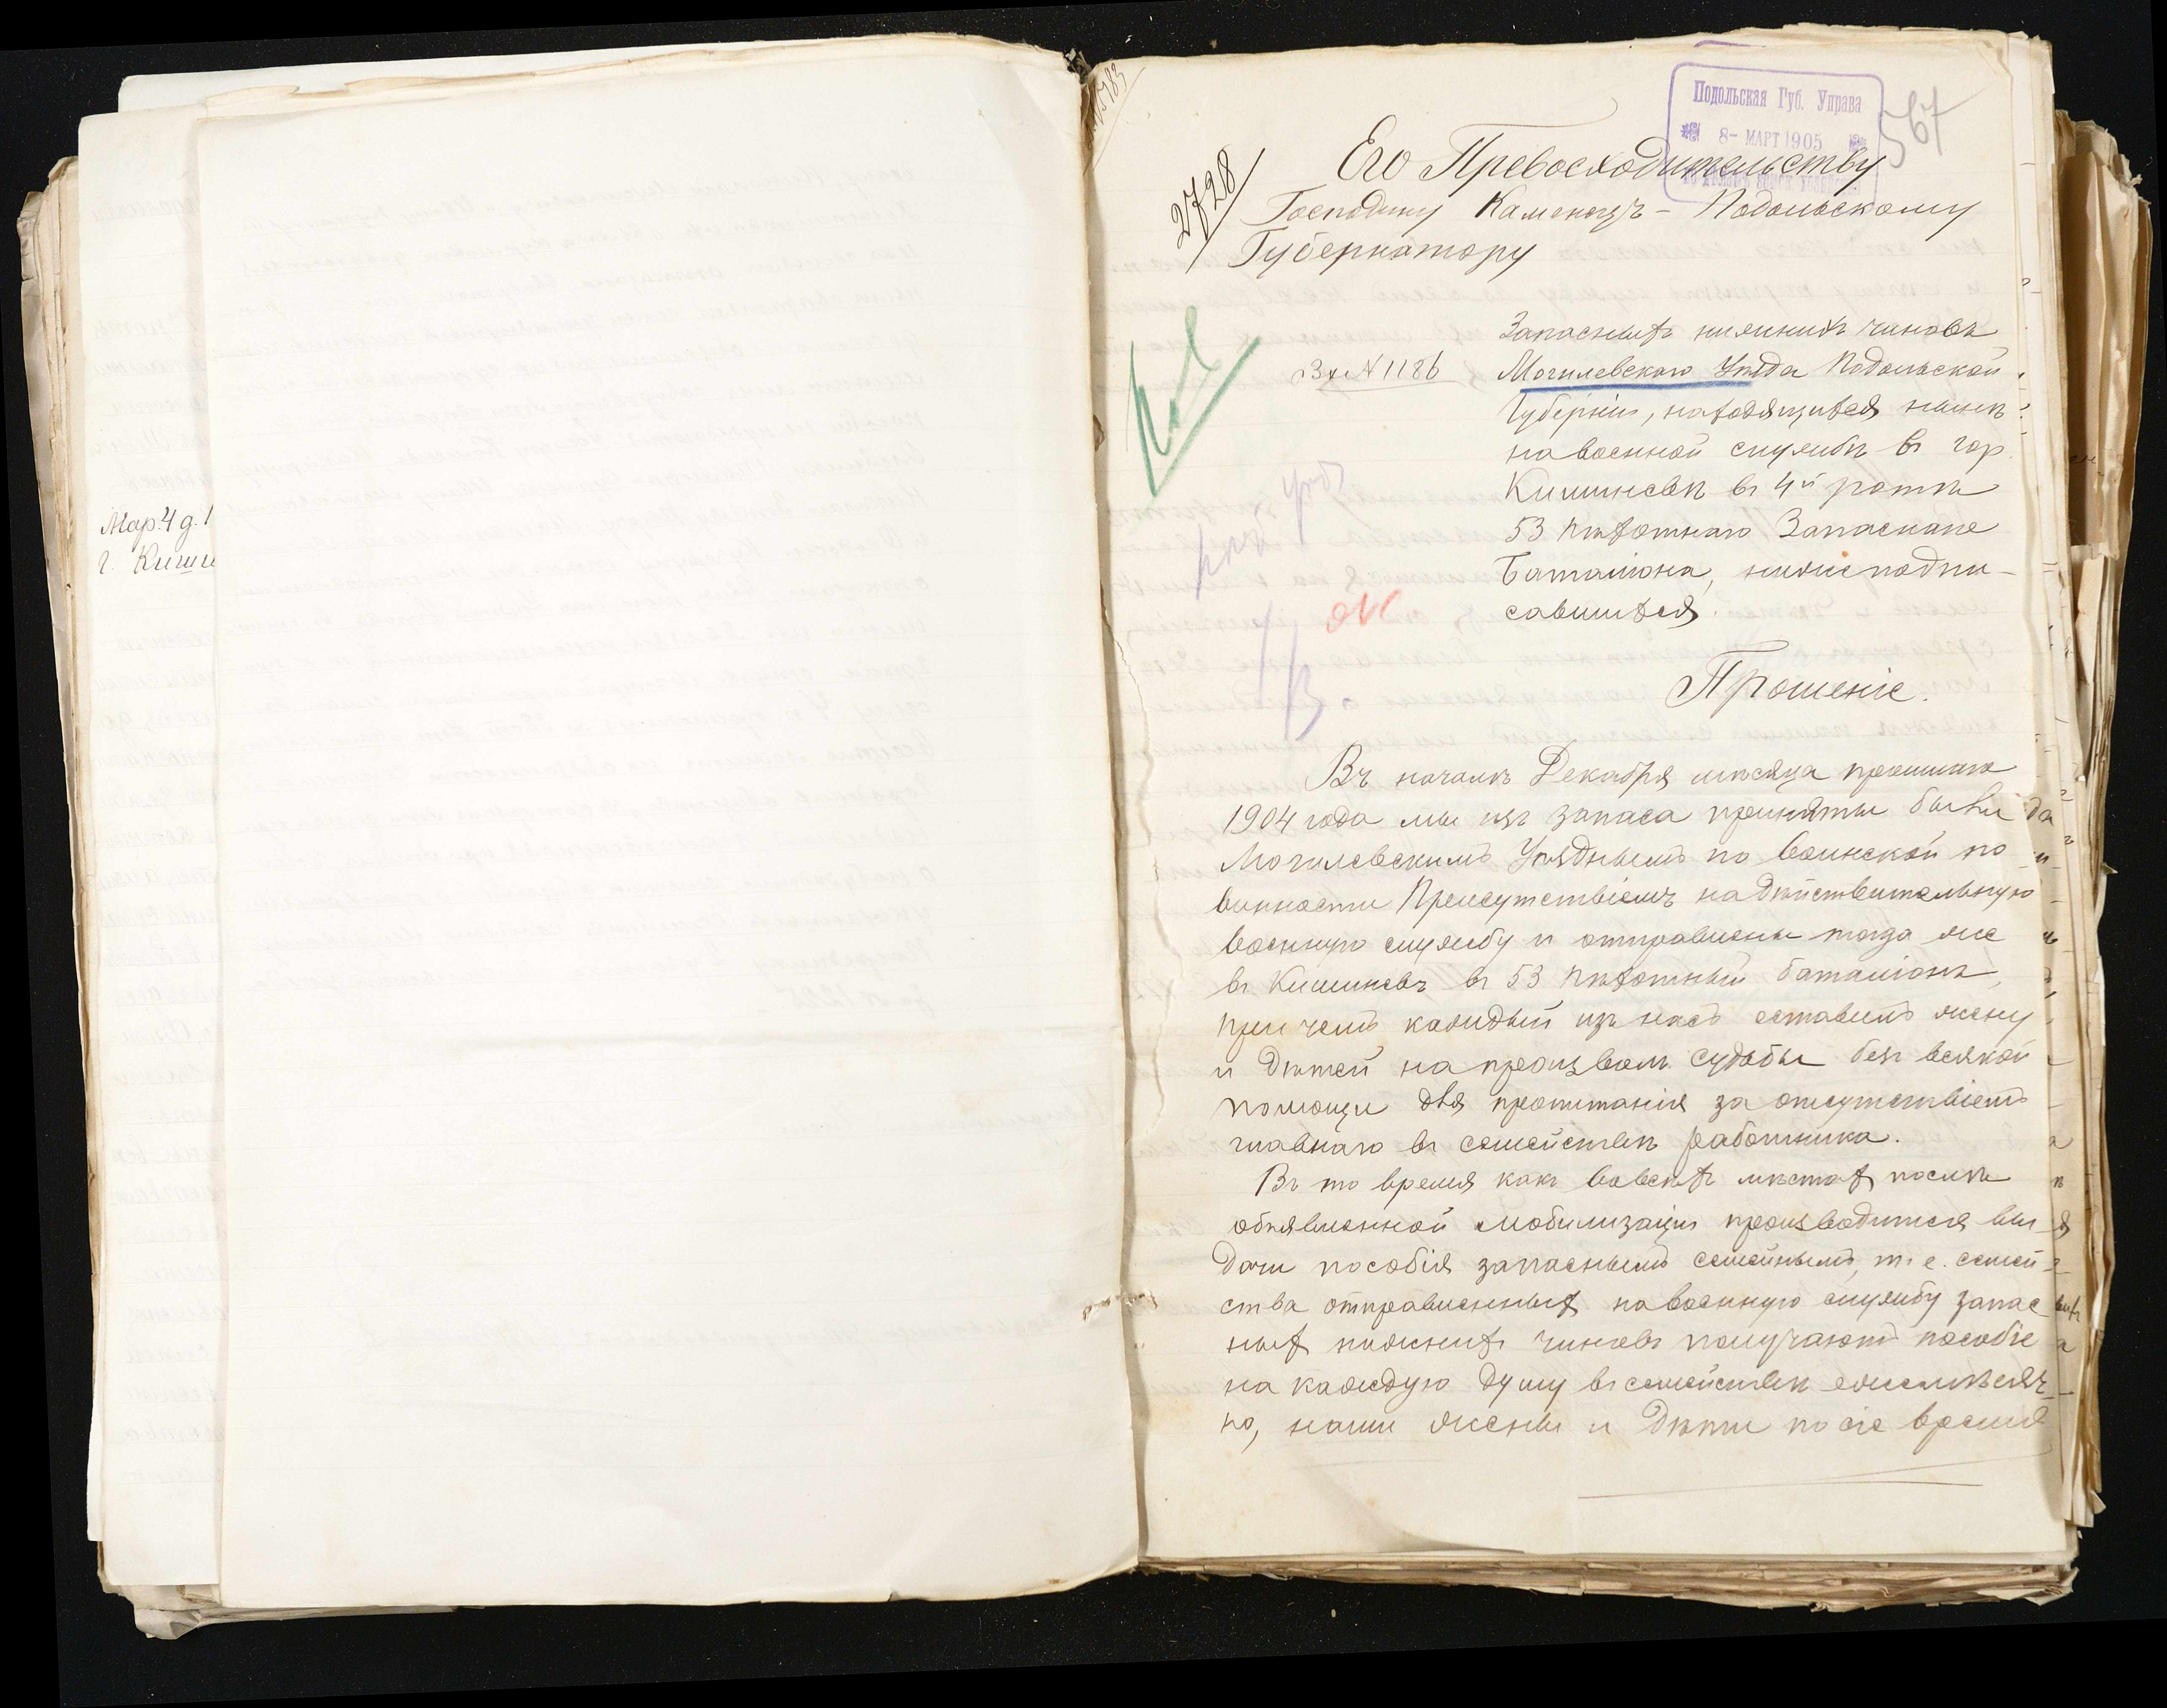 Мар. 4 д. 1
г. Киши
2728
Подольская Губ. Управа
8- МАРТ 1905
567
Его Превосходительству
Господину Каменецъ-Подольскому
Губернатору
Запасныхъ нижнихъ чиновъ
Вх. № 1186
Могилевскаго Уѣзда Подольской
Губерніи, находящихся нынѣ
на военной службѣ въ гор.
Кишиневѣ въ 4й ротѣ
53 Пѣхотнаго Запаснаго
Баталіона, нижеподпи-
савшихся.
Прошеніе.
Въ началѣ Декабря мѣсяца прошлаго
1904 года мы изъ запаса приняты были
Могилевскимъ Уѣзднымъ по воинской по
винности Присутствіемъ на дѣйствительную
военную службу и отправлены тогда же
въ Кишиневъ въ 53 Пѣхотный баталіонъ,
при чемъ каждый изъ насъ оставилъ жену
и дѣтей на произволъ судьбы безъ всякой
помощи для пропитанія за отсутствіемъ
главнаго въ семействѣ работника.
Въ то время какъ во всѣхъ мѣстахъ послѣ
объявленной мобилизаціи производится вы
дача пособія запаснымъ семейнымъ, т. е. семей
ства отправленныхъ на военную службу запас
ныхъ нижнихъ чиновъ получаютъ пособіе
на каждую душу въ семействѣ ежемѣсяч-
но, наши жены и дѣти по сіе время